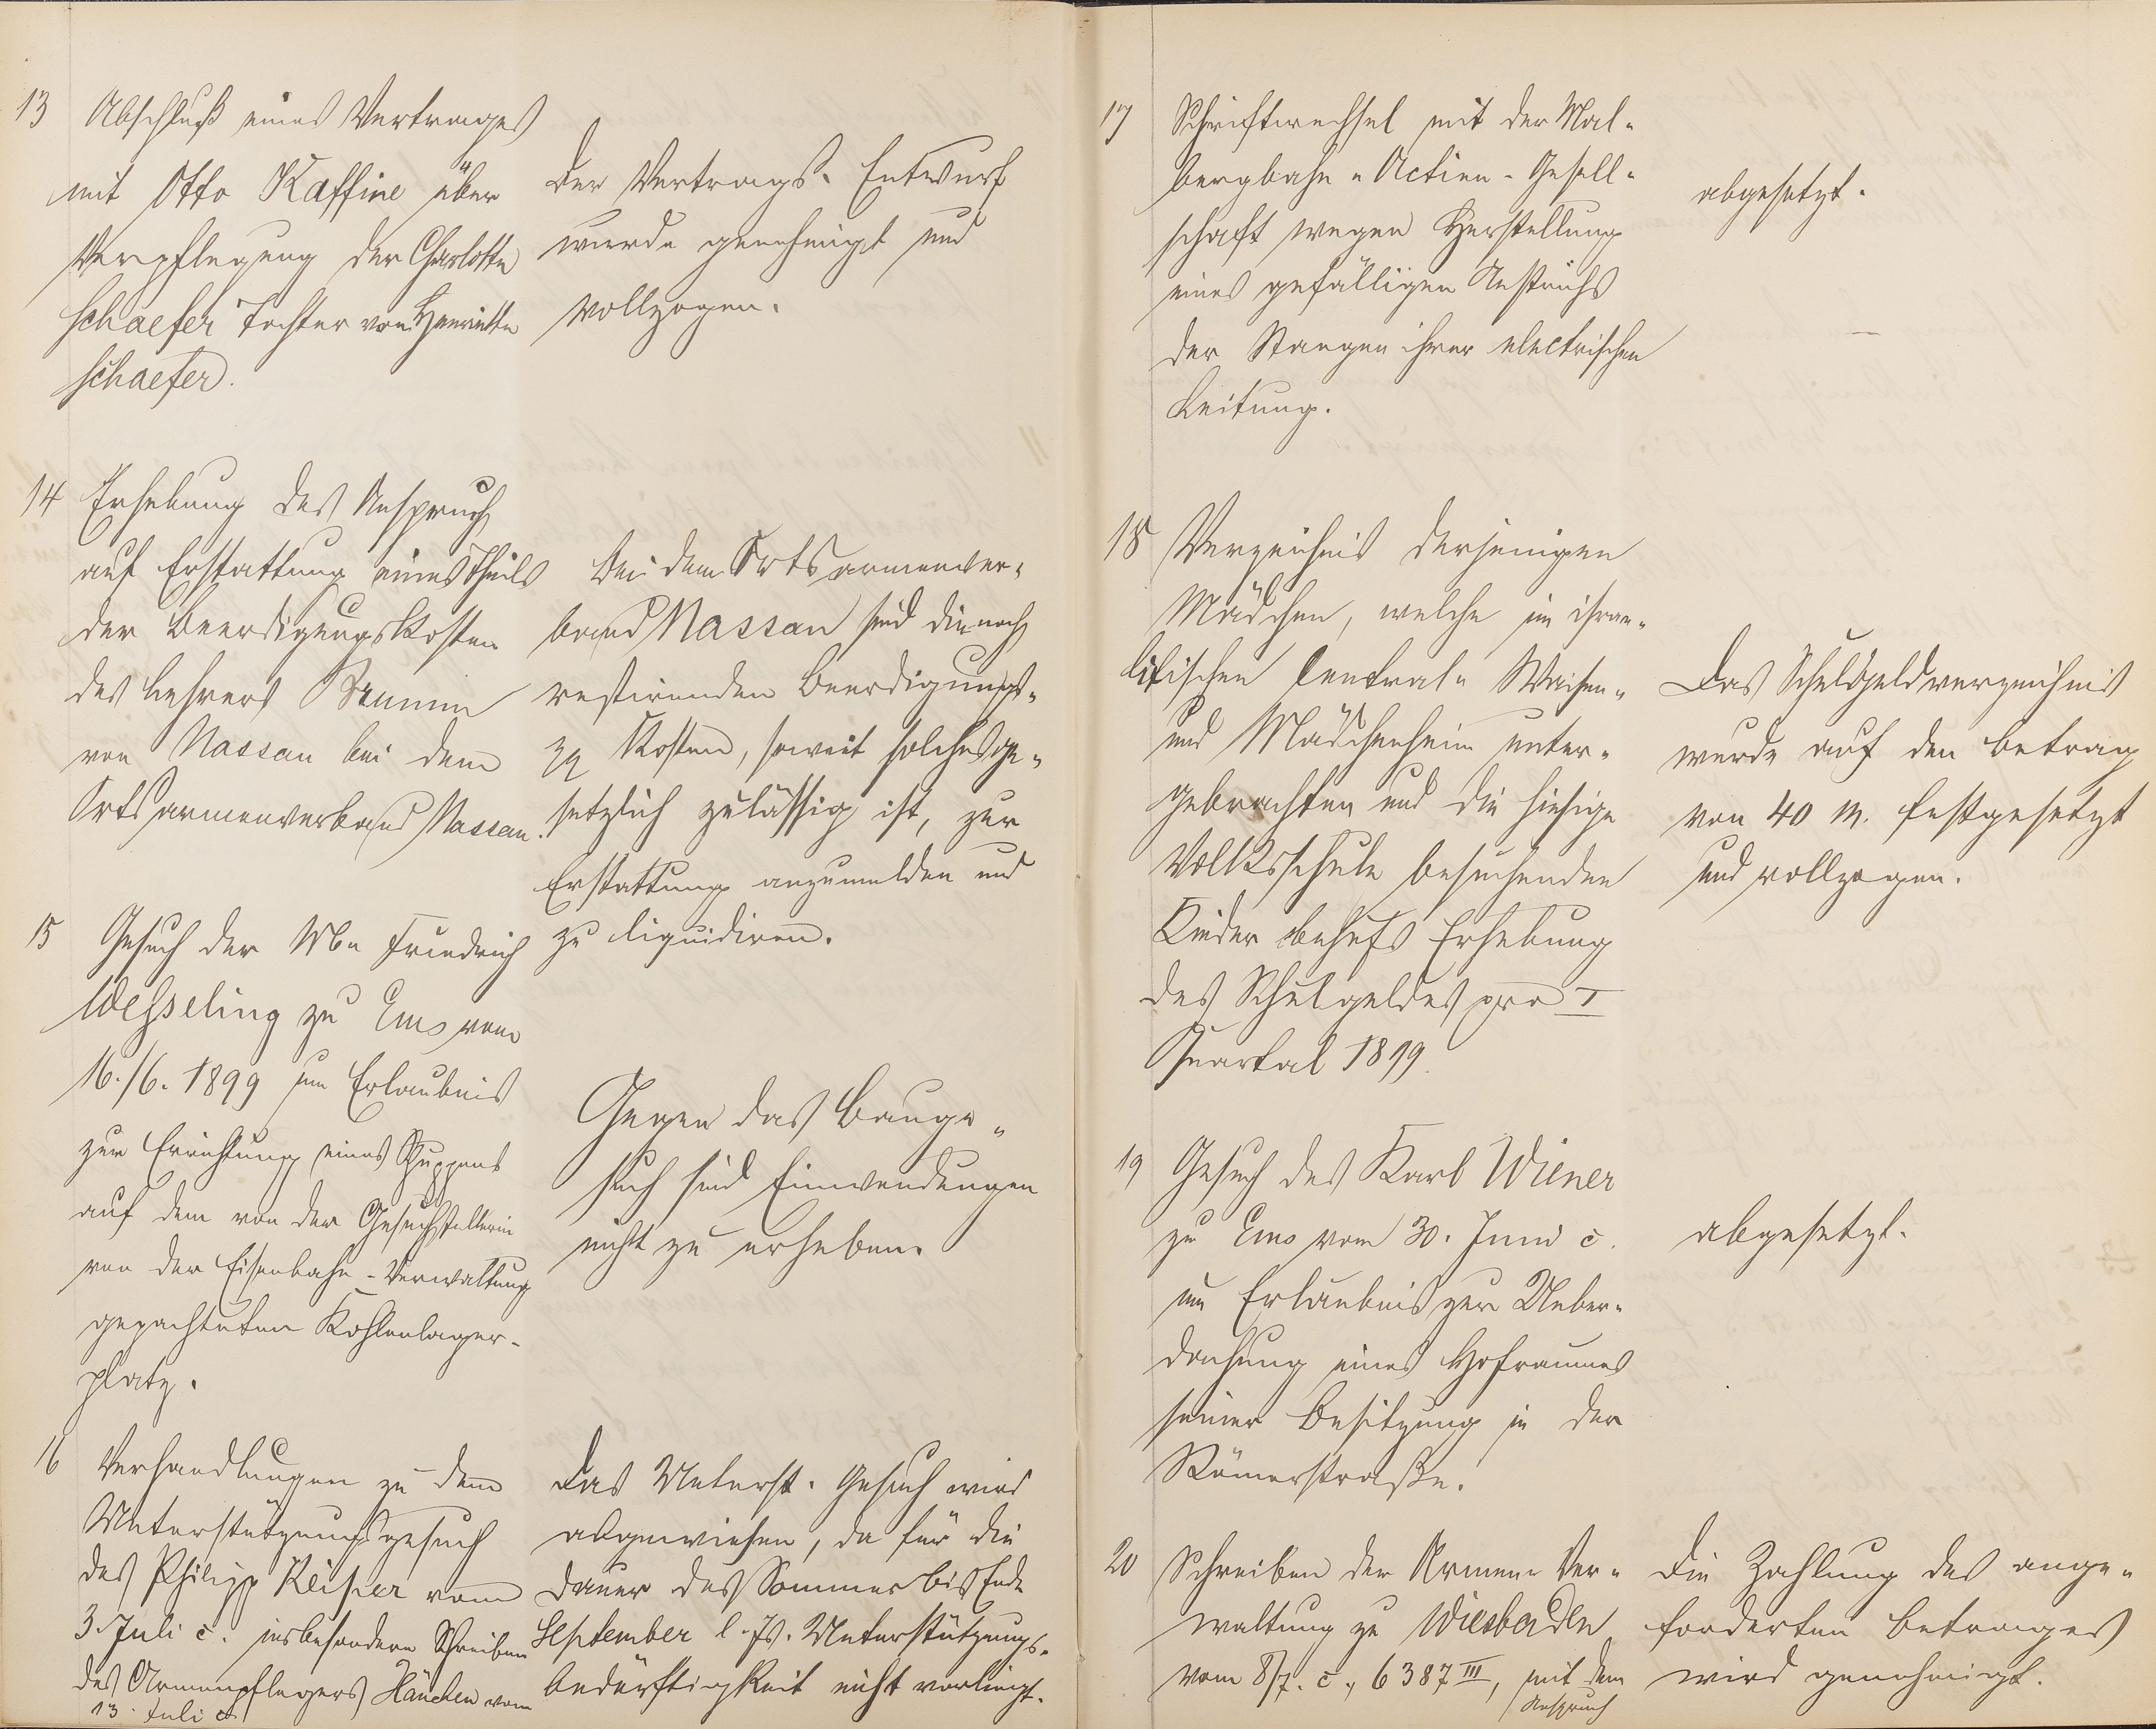 13 Abschluß eines Vertrages
mit Otto Kaffine über
Verpflegung der Charlotte
Schaefer Tochter von Henriette
Schaefer.
Der Vertrags-Entwurf
wurde genehmigt und
vollzogen.
14 Erhebung des Anspruch
auf Erstattung eines Theils
der Beerdigungskosten
des Lehrers Stumm
von Nassau bei dem
Ortsarmenverband Nassau.
Bei dem Ortsarmenver-
band Nassau sind die noch
restirenden Beerdigungs-
pp Kosten, soweit solches ge-
setzlich zulässig ist, zur
Erstattung anzumelden und
zu liquidiren.
15 Gesuch der Wbe Friedrich
Wesseling zu Ems vom
16./6. 1899 um Erlaubnis
zur Errichtung eines Schuppens
auf dem von der Gesuchstellerin
von der Eisenbahn-Verwaltung
gepachteten Kohlenlager-
platz.
Gegen das Bauge-
such sind Einwendungen
nicht zu erheben.
16 Verhandlungen zu dem
Unterstützungsgesuch
des Philipp Reiser vom
3. Juli c. insbesondere Schreiben
des Armenpflegers Hänchen vom
13. Juli c.
Das Unterst. Gesuch wird
abgewiesen, da für die
Dauer des Sommer bis Ende
September l. Js. Unterstützungs-
bedürftigkeit nicht vorliegt.
17 Schriftwechsel mit der Mal-
bergbahn-Actien-Gesell-
schaft wegen Herstellung
eines gefälligen Anstrichs
der Stangen ihrer electrischen
Leitung.
abgesetzt.
18 Verzeichnis derjenigen
Mädchen, welche im israe-
litischen Central-Waisen-
und Mädchenheim unter-
gebrachten und die hiesige
Volksschule besuchenden
Kinder behufs Erhebung
des Schulgeldes pro I
Quartal 1899.
Das Schulgeldverzeichnis
wurde auf den Betrag
von 40 M. festgesetzt
und vollzogen.
19 Gesuch des Karl Wiener
zu Ems vom 30. Juni c.
um Erlaubnis zur Ueber-
dachung eines Hofraumes
seiner Besitzung in der
Römerstraße.
abgesetzt.
20 Schreiben der Armen-Ver-
waltung zu Wiesbaden
vom 8/7. c., 6387 III, mit dem
Anspruch
Die Zahlung des ange-
forderten Betrages
wird genehmigt.